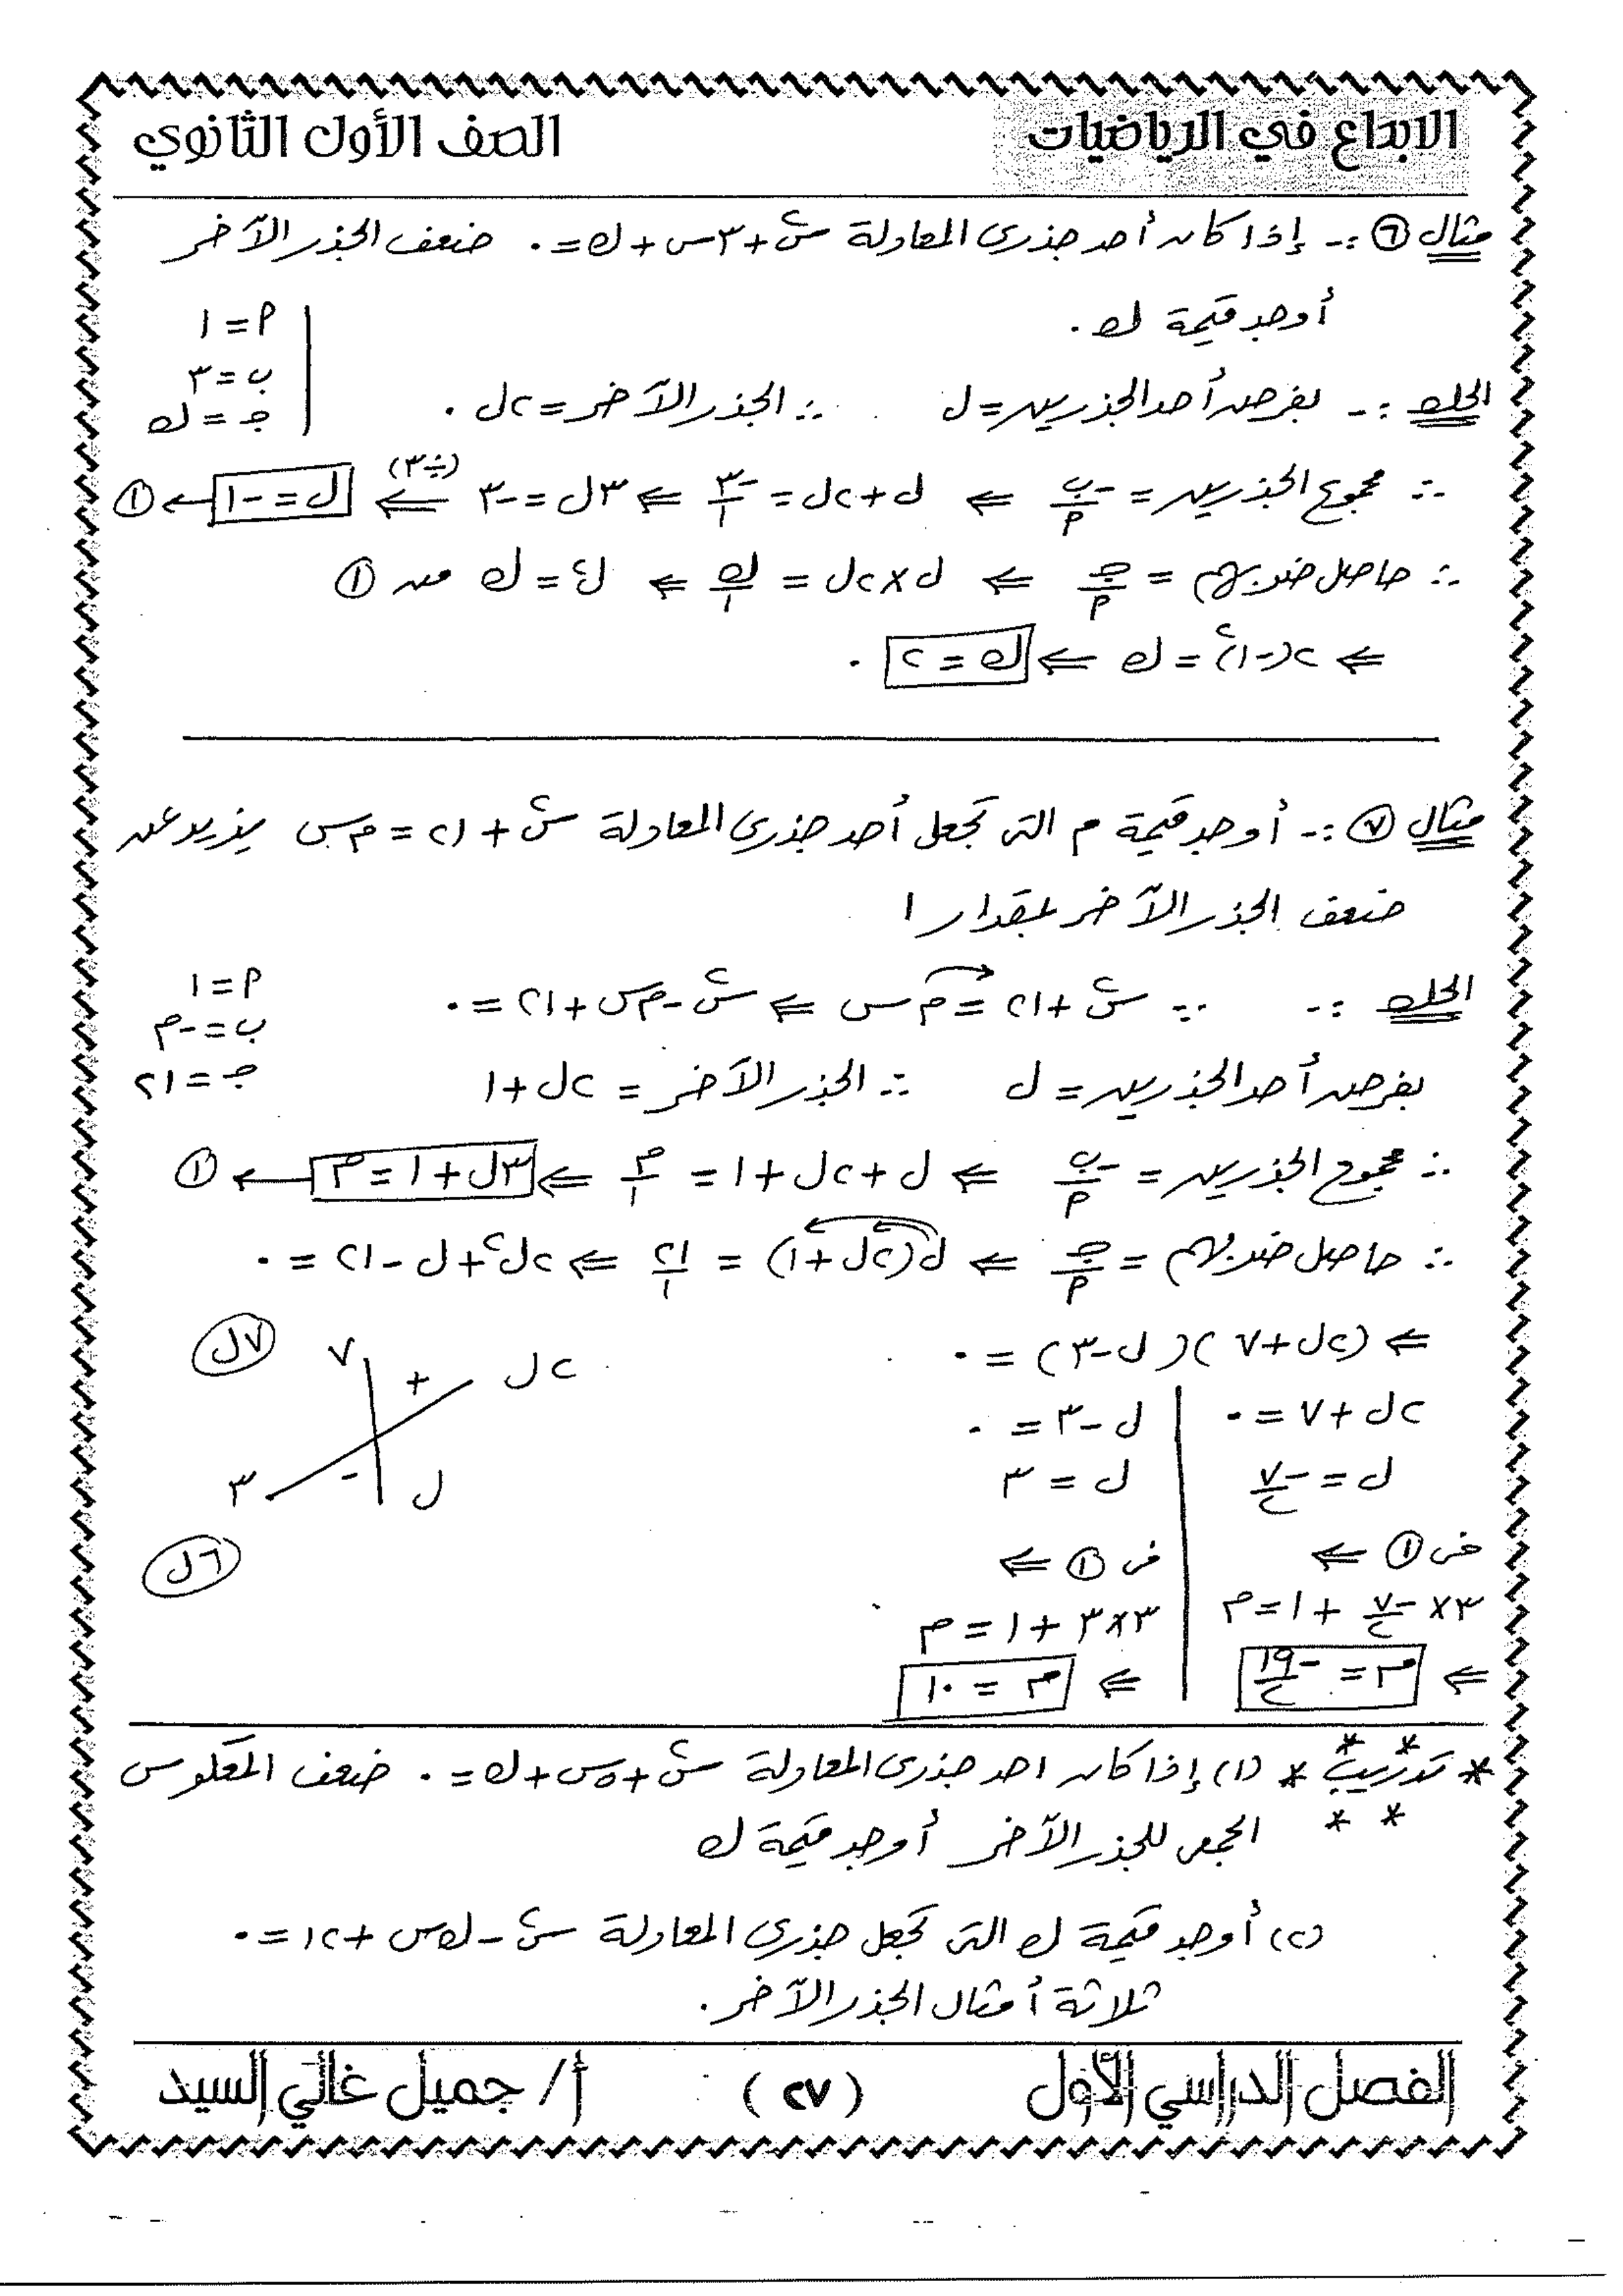 الابداع في الرياضيات
الصف الأول الثانوي
مثال ٦ :- إذا كان أحد جذرى المعادلة س² + ٣س + ك = ٠ ضعف الجذر الآخر
أوجد قيمة ك .
أ = ١
ب = ٣
جـ = ك
الحل :- بفرض أحد الجذرين = ل ∴ الجذر الآخر = ٢ل .
∴ مجموع الجذرين = -ب/أ ⇐ ل + ٢ل = -٣/١ ⇐ ٣ل = -٣ (÷٣) ⇐ ل = -١ ← ①
∴ حاصل ضربهم = جـ/أ ⇐ ل × ٢ل = ك/١ ⇐ ٢ل² = ك من ①
⇐ ٢(-١)² = ك ⇐ ك = ٢ .
مثال ٧ :- أوجد قيمة م التى تجعل أحد جذرى المعادلة س² + ٢١ = م س يزيد عن
ضعف الجذر الآخر بمقدار ١
الحل :- ∵ س² + ٢١ = م س ⇐ س² - م س + ٢١ = ٠
أ = ١
ب = -م
جـ = ٢١
بفرض أحد الجذرين = ل ∴ الجذر الآخر = ٢ل + ١
∴ مجموع الجذرين = -ب/أ ⇐ ل + ٢ل + ١ = م/١ ⇐ ٣ل + ١ = م ← ①
∴ حاصل ضربهم = جـ/أ ⇐ ل(٢ل + ١) = ٢١/١ ⇐ ٢ل² + ل - ٢١ = ٠
⇐ (٢ل + ٧)(ل - ٣) = ٠
٢ل + ٧ ٧ل
ل - ٣ ٦ل
٢ل + ٧ = ٠ | ل - ٣ = ٠
ل = -٧/٢ | ل = ٣
فى ① ⇐ | فى ① ⇐
٣ × -٧/٢ + ١ = م | ٣ × ٣ + ١ = م
⇐ م = -١٩/٢ | ⇐ م = ١٠
* تدريب * (١) إذا كان احد جذرى المعادلة س² + ٥س + ك = ٠ ضعف المعكوس
الجمعى للجذر الآخر أوجد قيمة ك
(٢) أوجد قيمة ك التى تجعل جذرى المعادلة س² - ك س + ١٢ = ٠
ثلاثة أمثال الجذر الآخر .
الفصل الدراسي الأول
( ٢٧ )
أ / جميل غالي السيد